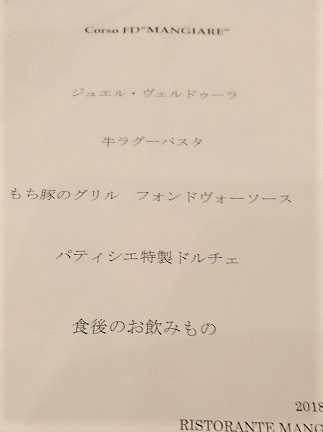 Corso FD"MANGIARE"
ジュエル・ヴェルドゥーラ
牛ラグーパスタ
もち豚のグリル　フォンドヴォーソース
パティシエ特製ドルチェ
食後のお飲みもの
2018
RISTORANTE MANG